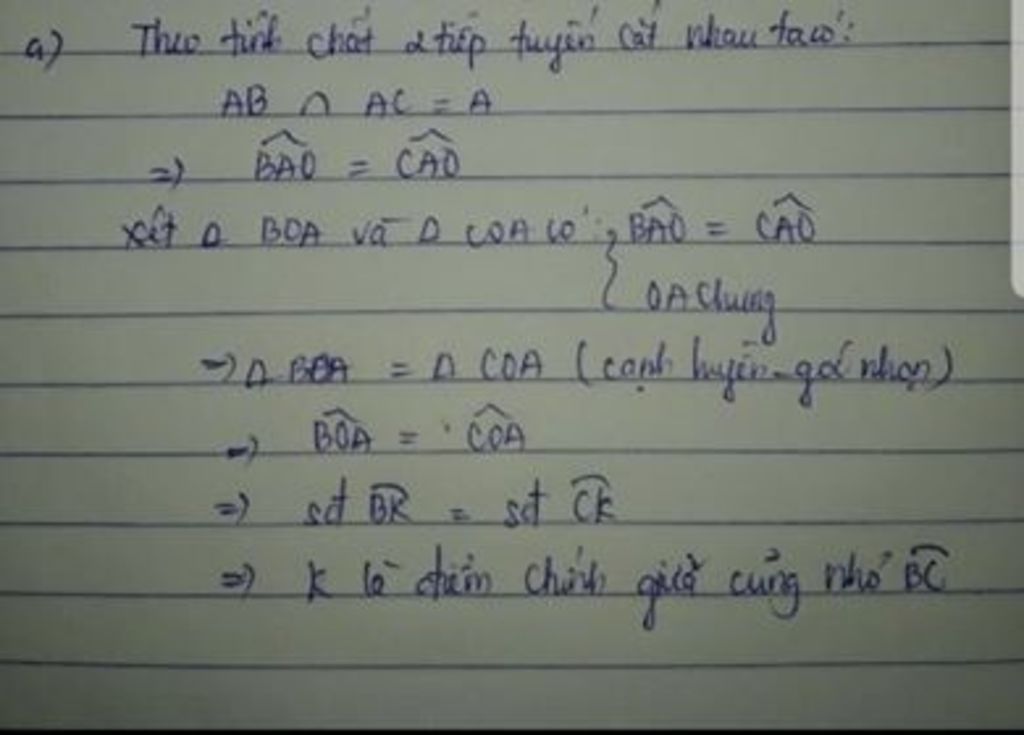 a) Theo tính chất 2 tiếp tuyến cắt nhau ta có:
AB ∩ AC = A
=> \widehat{BAO} = \widehat{CAO}
Xét Δ BOA và Δ COA có: { \widehat{BAO} = \widehat{CAO}
OA chung
=> Δ BOA = Δ COA (cạnh huyền - góc nhọn)
=> \widehat{BOA} = \widehat{COA}
=> sđ \overgroup{BK} = sđ \overgroup{CK}
=> K là điểm chính giữa cung nhỏ \overgroup{BC}